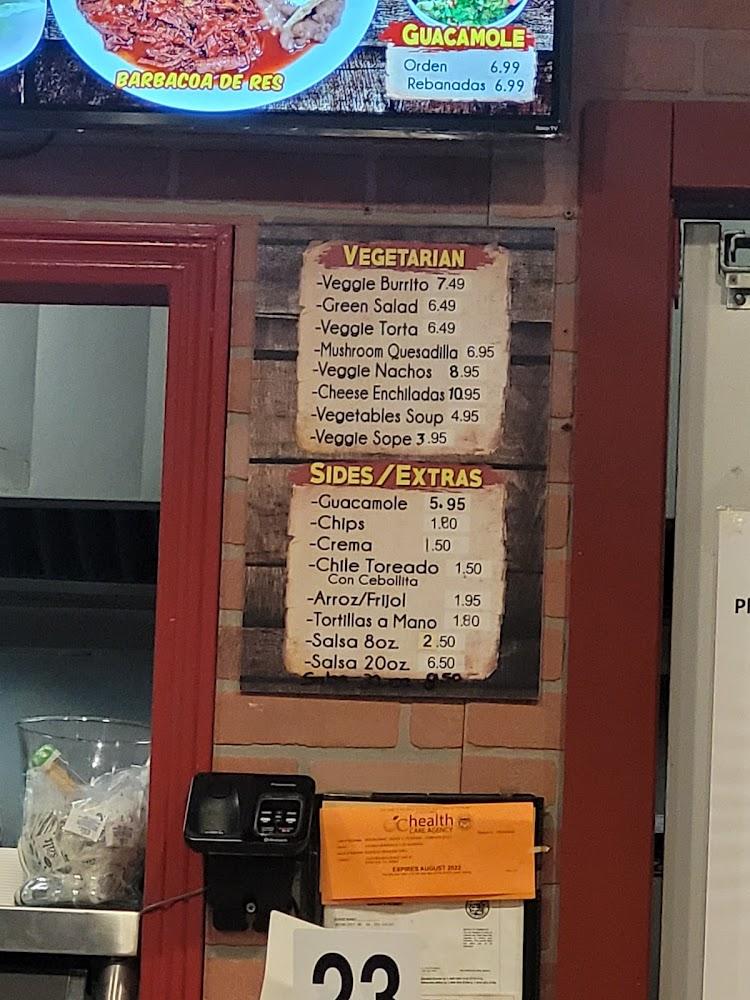 GUACAMOLE
Orden 6.99
Rebanadas 6.99
BARBACOA DE RES
Roku TV
VEGETARIAN
-Veggie Burrito 7.49
-Green Salad 6.49
-Veggie Torta 6.49
-Mushroom Quesadilla 6.95
-Veggie Nachos 8.95
-Cheese Enchiladas 10.95
-Vegetables Soup 4.95
-Veggie Sope 3.95
SIDES/EXTRAS
-Guacamole 5.95
-Chips 1.80
-Crema 1.50
-Chile Toreado 1.50
Con Cebollita
-Arroz/Frijol 1.95
-Tortillas a Mano 1.80
-Salsa 8oz. 2.50
-Salsa 20oz. 6.50
health
CARE AGENCY
EXPIRES AUGUST 2022
23